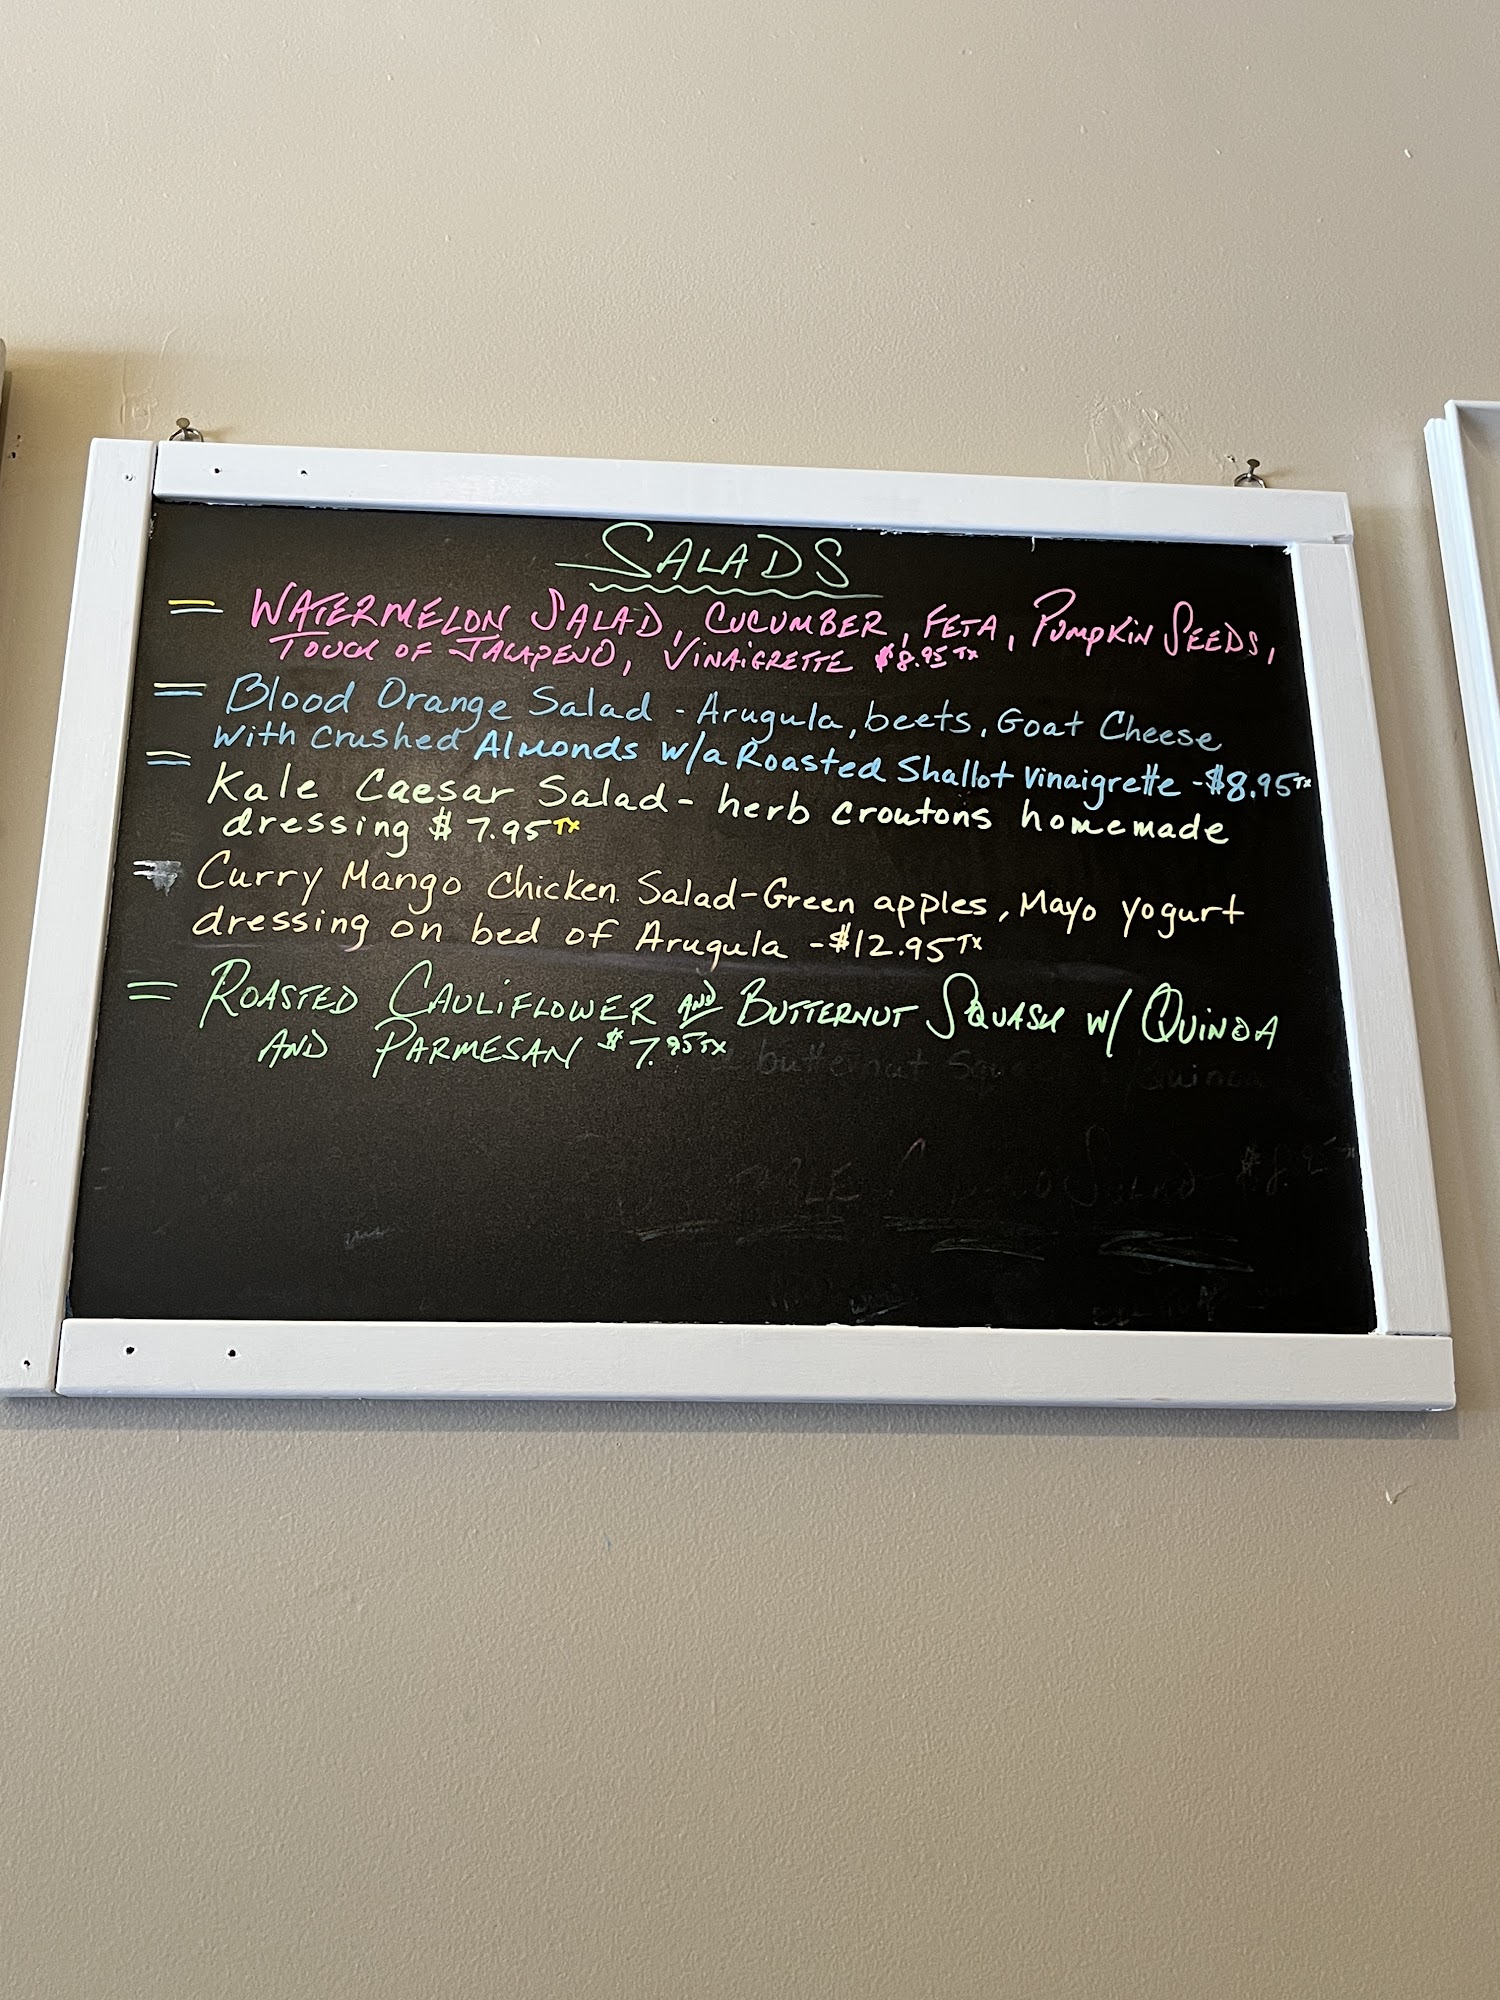 SALADS
= WATERMELON SALAD, CUCUMBER, FETA, PUMPKIN SEEDS,
TOUCH OF JALAPENO, VINAIGRETTE $8.95 TX
= Blood Orange Salad - Arugula, beets, Goat Cheese
with crushed Almonds w/a Roasted Shallot vinaigrette - $8.95 TX
= Kale Caesar Salad - herb croutons homemade
dressing $7.95 TX
= Curry Mango Chicken Salad - Green apples, Mayo yogurt
dressing on bed of Arugula - $12.95 TX
= ROASTED CAULIFLOWER AND BUTTERNUT SQUASH W/ QUINOA
AND PARMESAN $7.95 TX
butternut